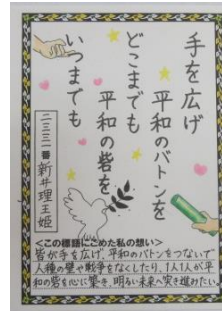 手を広げ
平和のバトンを
どこまでも
平和の砦を
いつまでも
二三三一番 新井理王姫
<この標語にこめた私の想い>
皆が手を広げ、平和のバトンをつないで
人種の壁や戦争をなくしたり、1人1人が平
和の砦を心に築き、明るい未来へ突き進みたい。